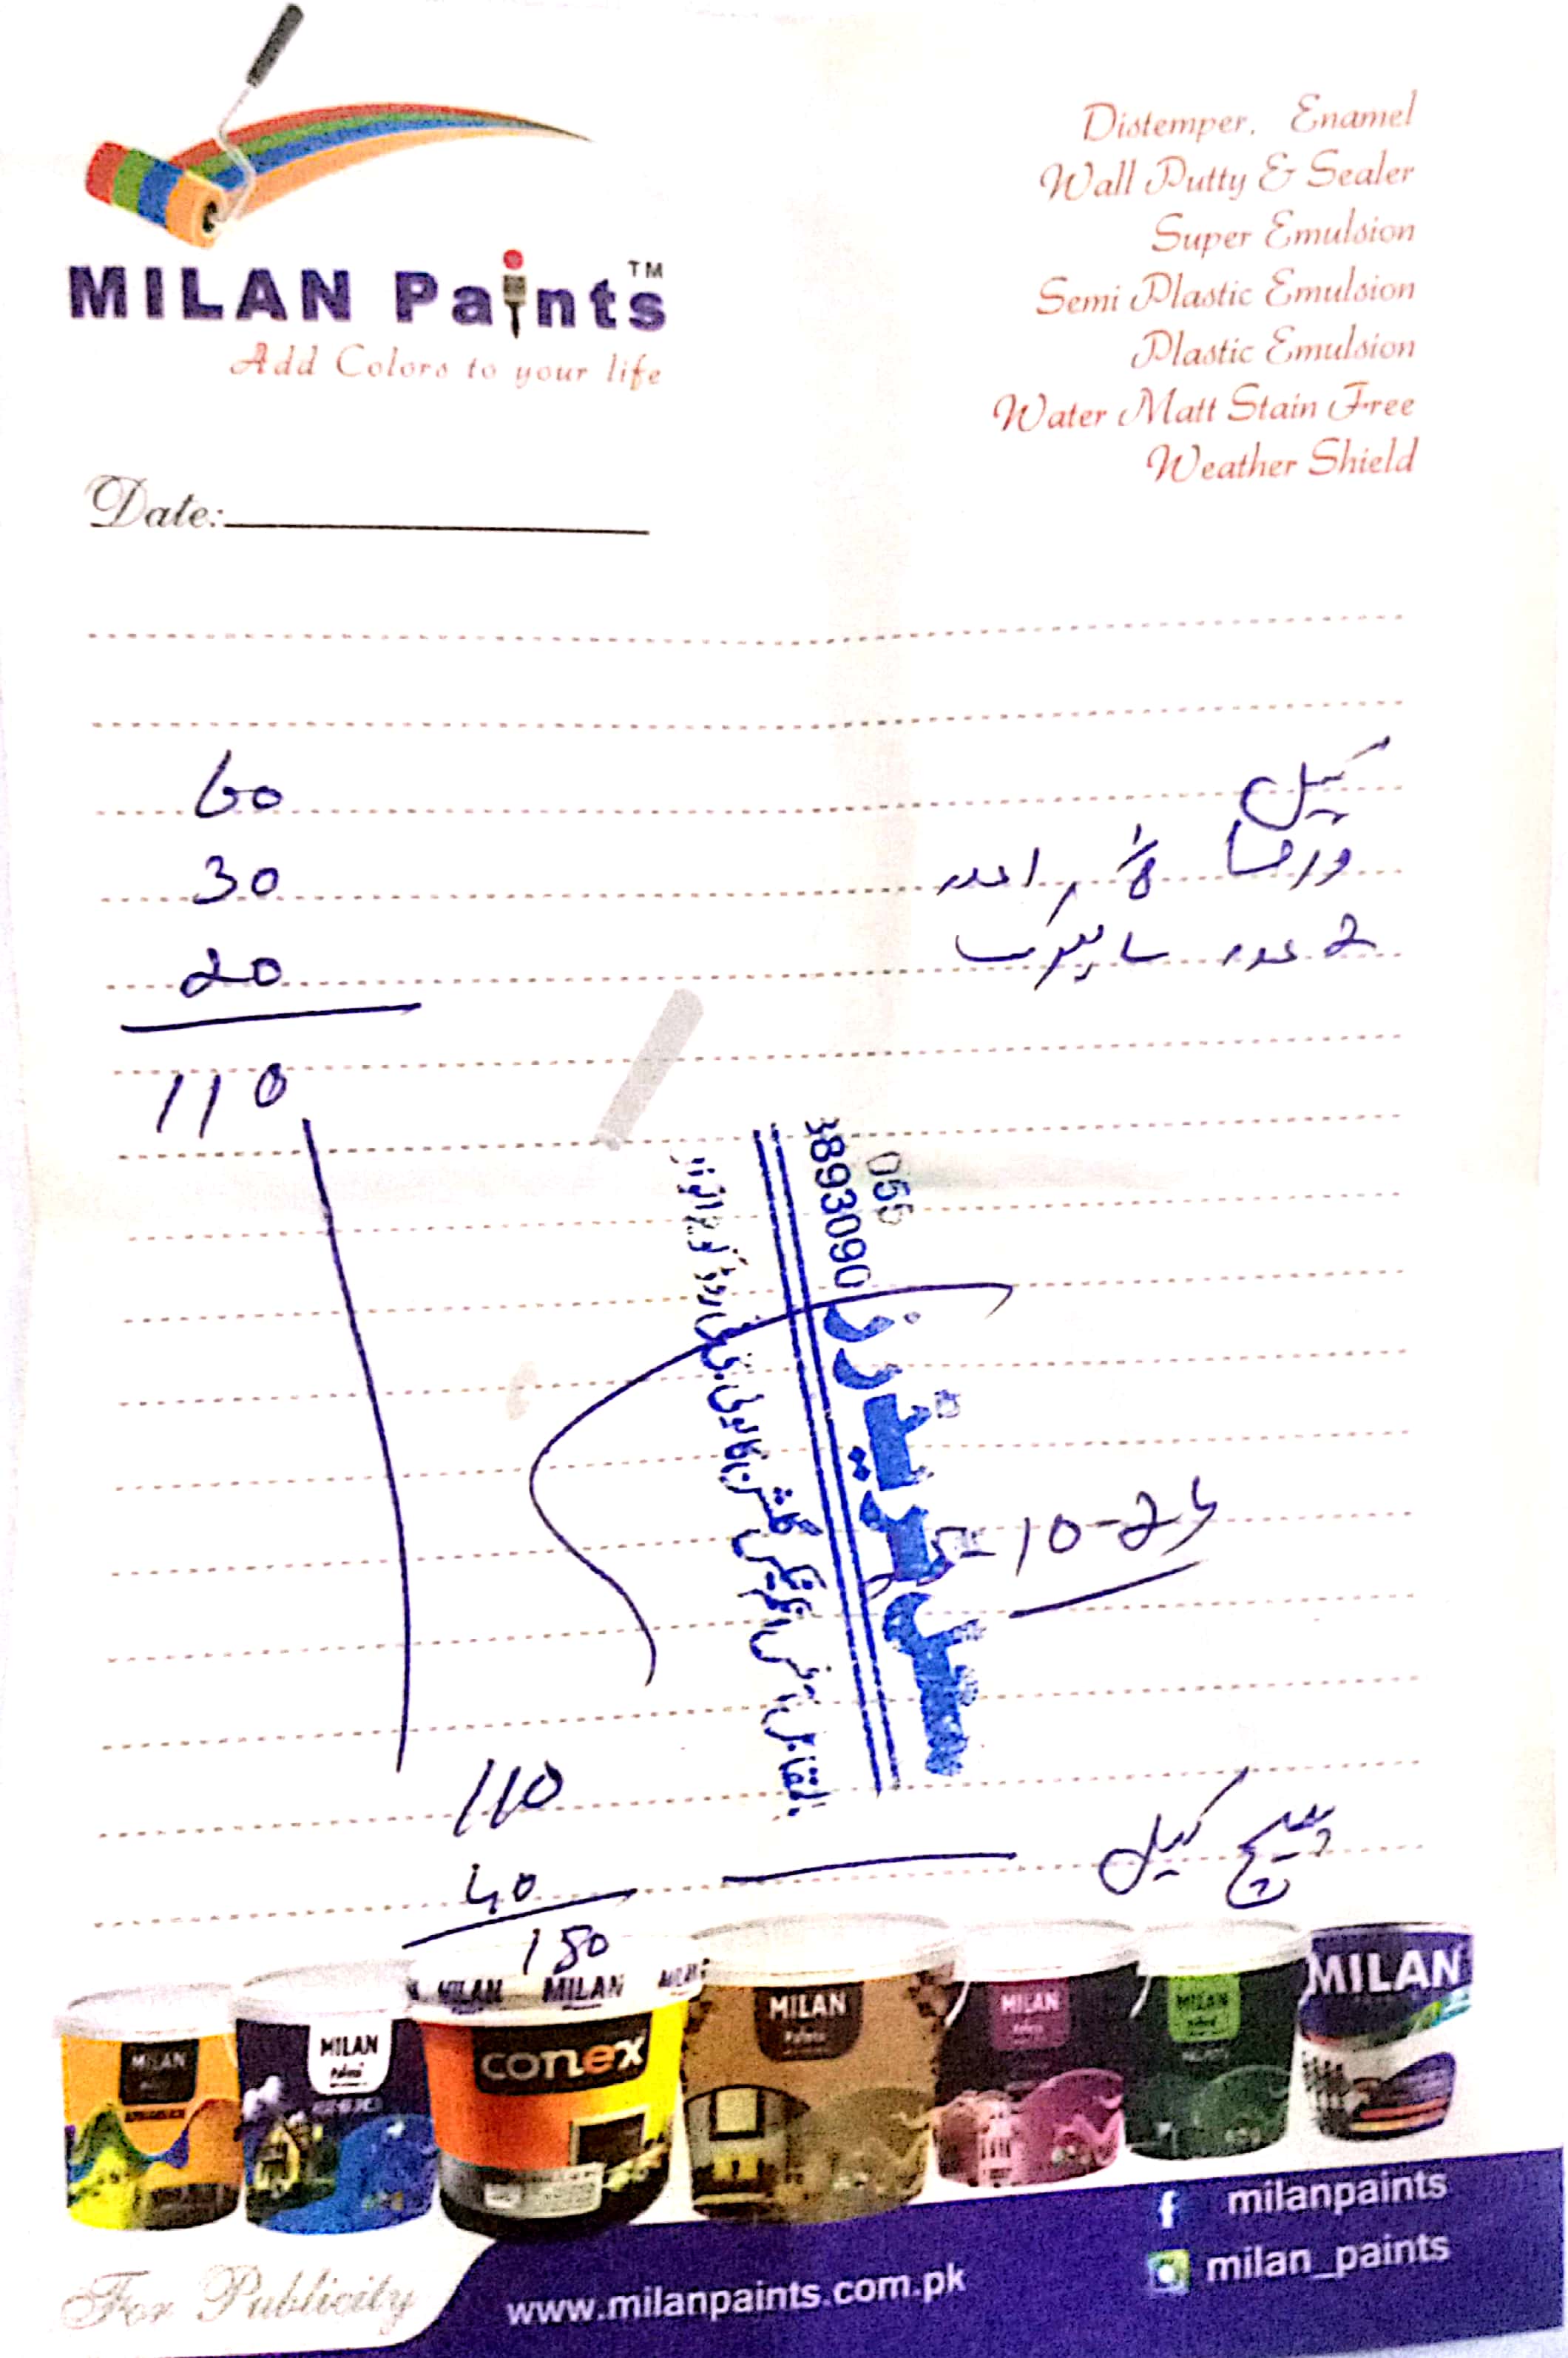 MILAN Paints TM
Add Colors to your life
Distemper, Enamel
Wall Putty & Sealer
Super Emulsion
Semi Plastic Emulsion
Plastic Emulsion
Water Matt Stain Free
Weather Shield
Date:
کیل 60
1 عدد 30
2 عدد 20
110
055
3893090
ٹریڈرز
-10-25
110
کیل 40
150
MILAN MILAN
MILAN
MILAN
conex
MILAN
MILAN
MILAN
MILAN
For Publicity
www.milanpaints.com.pk
milanpaints
milan_paints